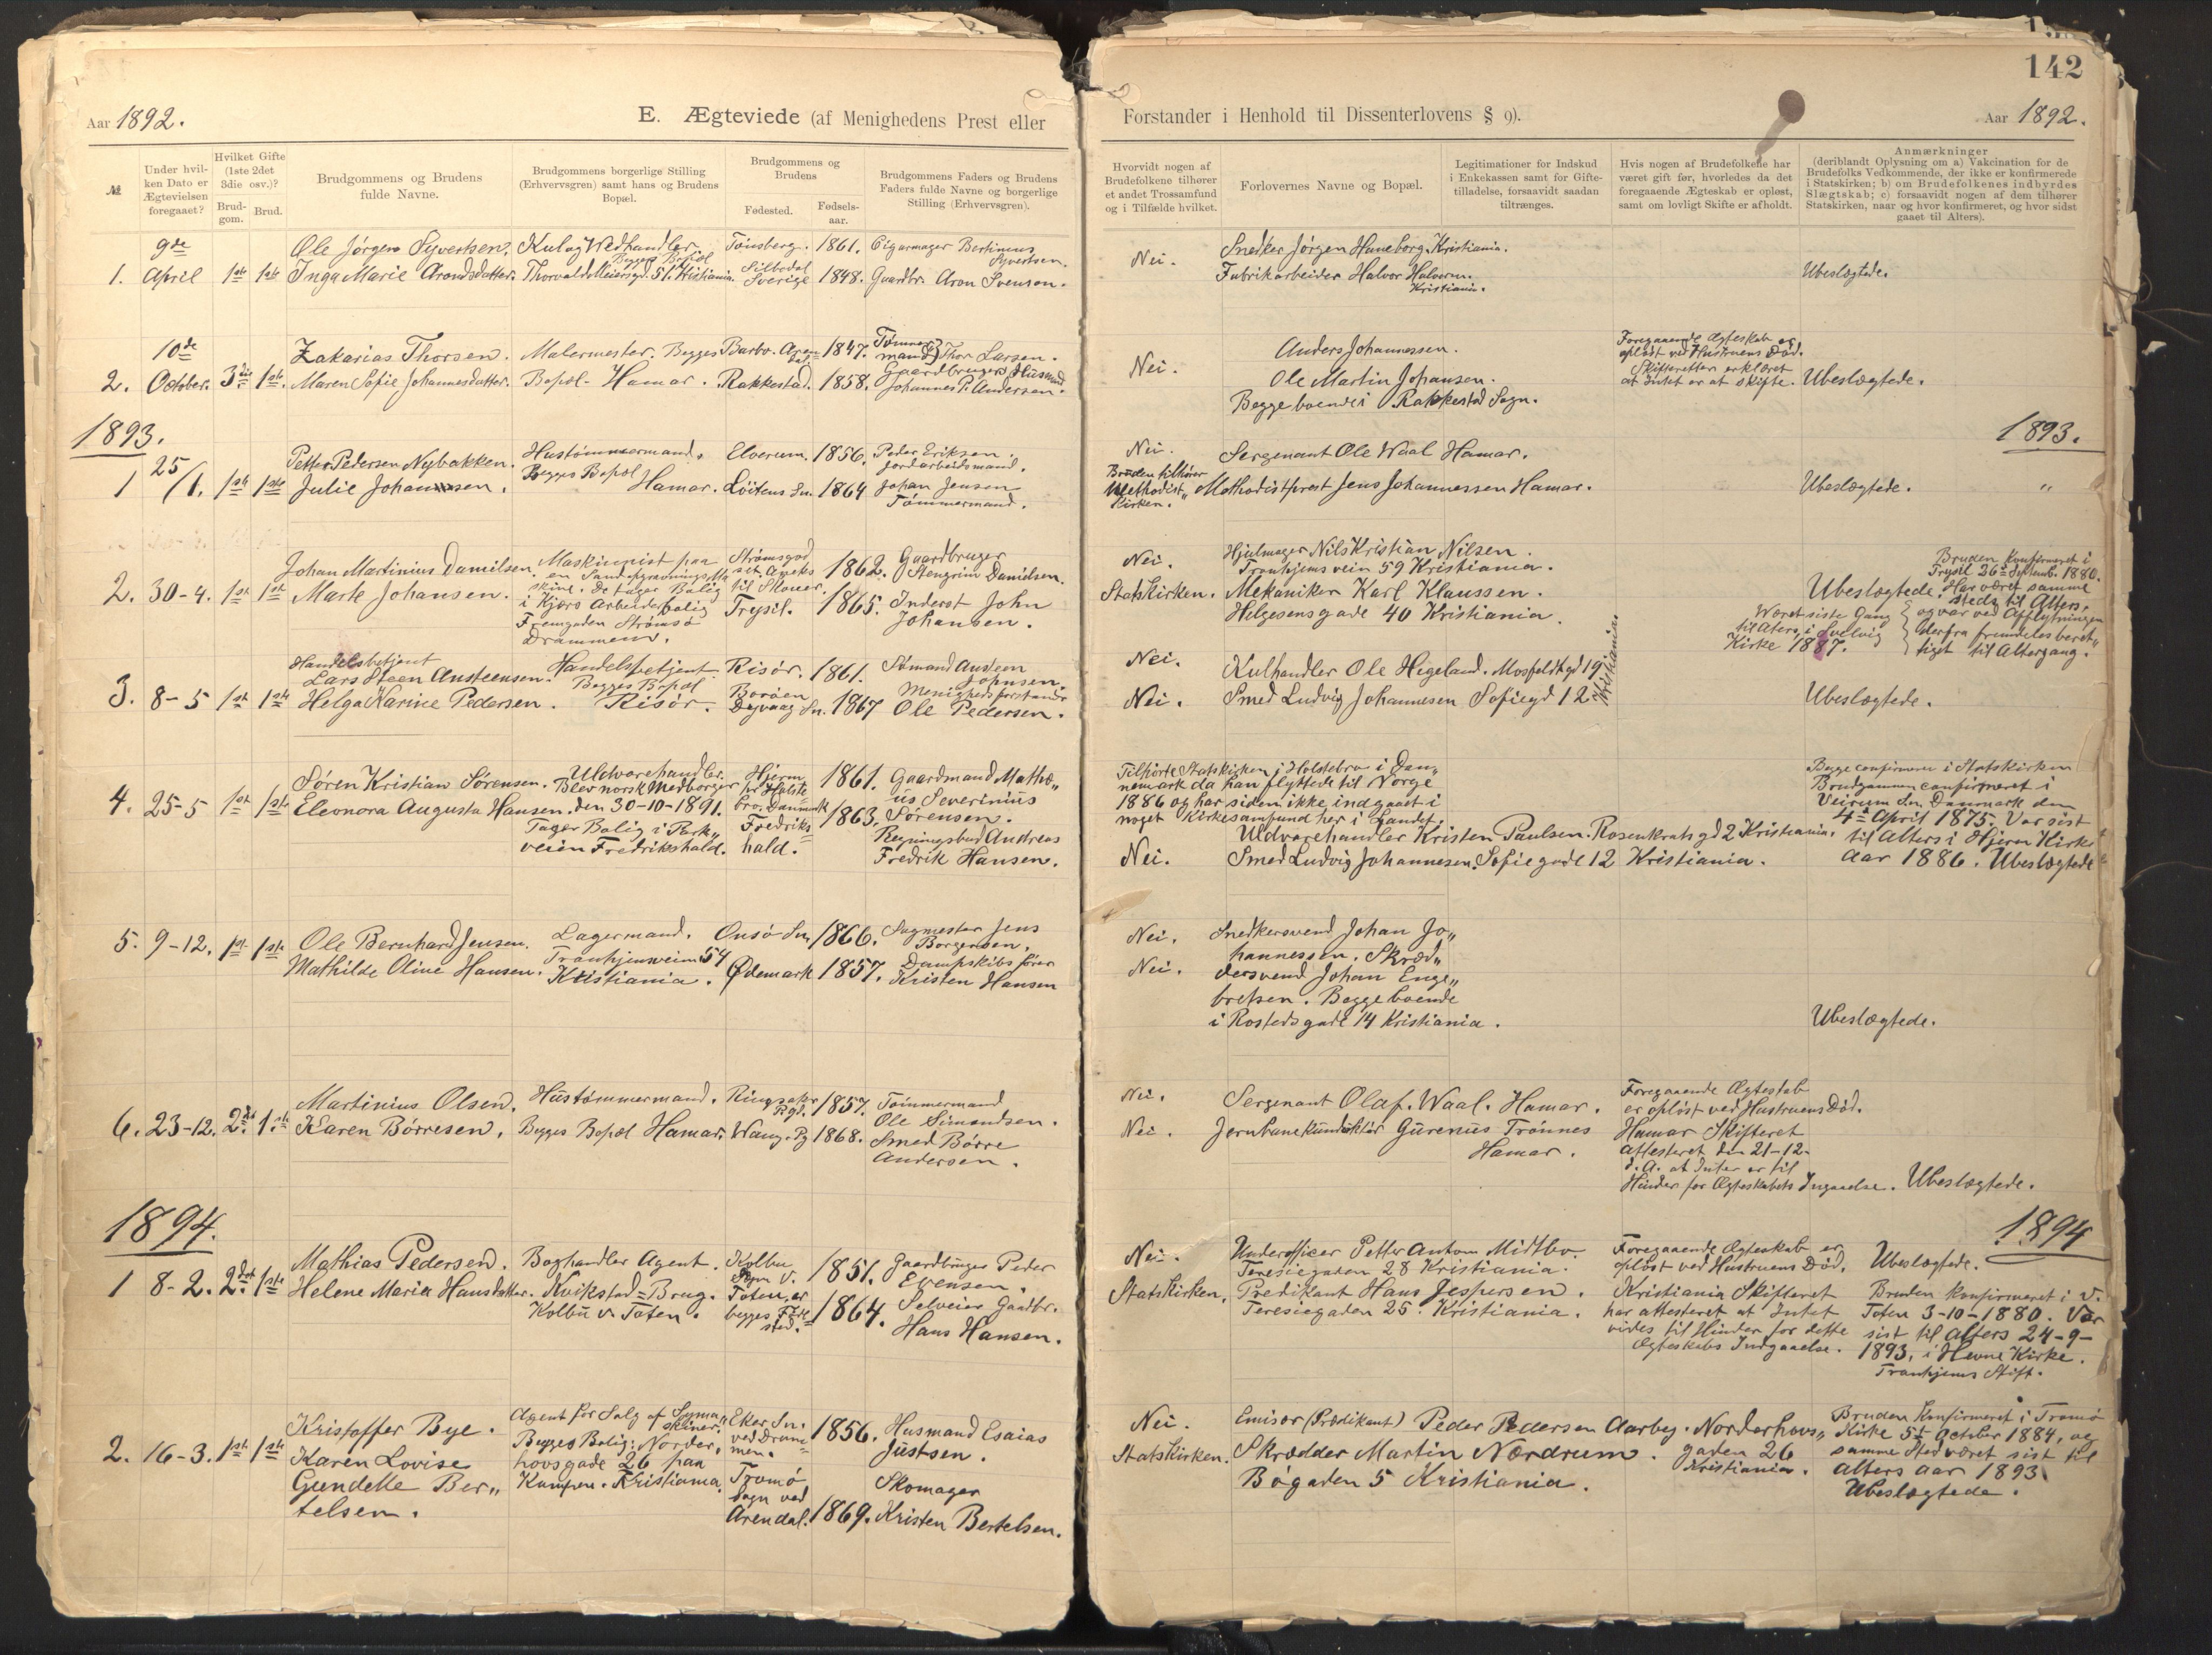 142
Aar 1892.
E. Ægteviede (af Menighedens Prest eller
Forstander i Henhold til Dissenterlovens § 9).
Aar 1892.
№
Under hvil-
ken Dato er
Ægtevielsen
foregaaet?
Hvilket Gifte
(1ste 2det
3die osv.)?
Brud-
gom.
Brud.
Brudgommens og Brudens
fulde Navne.
Brudgommens borgerlige Stilling
(Erhvervsgren) samt hans og Brudens
Bopæl.
Brudgommens og
Brudens
Fødested.
Fødsels-
aar.
Brudgommens Faders og Brudens
Faders fulde Navne og borgerlige
Stilling (Erhvervsgren).
Hvorvidt nogen af
Brudefolkene tilhører
et andet Trossamfund
og i Tilfælde hvilket.
Forlovernes Navne og Bopæl.
Legitimationer for Indskud
i Enkekassen samt for Gifte-
tilladelse, forsaavidt saadan
tiltrænges.
Hvis nogen af Brudefolkene har
været gift før, hvorledes da det
foregaaende Ægteskab er opløst,
samt om lovligt Skifte er afholdt.
Anmærkninger
(deriblandt Oplysning om a) Vakcination for de
Brudefolks Vedkommende, der ikke er konfirmerede
i Statskirken; b) om Brudefolkenes indbyrdes
Slægtskab; c) forsaavidt nogen af dem tilhører
Statskirken, naar og hvor konfirmeret, og hvor sidst
gaaet til Alters).
1.
9de
April
1ste
1ste
Ole Jørgen Syvertsen.
Inga Marie Aronsdatter.
Kul og Vedhandler.
Begges Bopæl
Thorvald Meiersgd. 51. Kristiania.
Tønsberg. 1861.
Silbodal
Sverige 1848.
Cigarmager Bertinius
Syvertsen.
Gaardbr. Aron Svenson.
Nei.
Snedker Jørgen Huneborg. Kristiania.
Fabrikarbeider Halvor Halvorsen.
Kristiania.
Ubeslægtede.
2.
10de
October.
3die
1ste
Zakarias Thorsen.
Maren Sofie Johannesdatter.
Malermester. Begges
Bopæl- Hamar.
Barbo. Aren-
dal 1847.
Rakkestad. 1858.
Tømmer-
mand Thor Larsen.
Gaardbruger Husmand
Johannes P. Andersen.
Nei.
Anders Johannessen.
Ole Martin Johansen.
Begge boende i Rakkestad Sogn.
Foregaaende Ægteskab er
opløst ved Hustruens Død.
Skifteretten erklæret
at Intet er at skifte.
Ubeslægtede.
1893.
1893.
1
25/1.
1ste
1ste
Petter Pedersen Nybakken.
Julie Johansen.
Hustømmermand.
Begges Bopæl
Hamar.
Elverum. 1856.
Löitens Sn. 1864
Peder Eriksen.
Jordarbeidsmand.
Johan Jensen
Tømmermand.
Nei.
Bruden tilhører
Methodist„
Kirken.
Sergenant Ole Waal Hamar.
Methodistprest Jens Johannessen Hamar.
Ubeslægtede.
„
2. 30-4. 1ste 1ste
Johan Martinius Danielsen.
Marte Johansen.
Maskinnist paa
en Sandopgravnings Ma
skine. De tager Bolig
i Kjørs Arbeiderbolig
Fremgaden Strømsø
Drammen.
Strømsgod
set. Aneks
til Skouer.
1862.
Trysil. 1865.
Gaardbruger
Stengrim Danielsen.
Inderst John
Johansen.
Nei.
Statskirken.
Hjulmager Nils Kristian Nilsen.
Tronhjemsvein 59 Kristiania.
Mekaniker Karl Klaussen.
Helgesensgade 40 Kristiania.
Ubeslægtede.
Bruden konfirmeret i
Trysil 26de Septemb. 1880.
Har været samme
sted til Alters,
og var ved Afflytningen
derfra fremdeles beret„
tiget til Altergang.
Været siste Gang
til Alters, i Svelvig
Kirke 1887.
3. 8-5 1ste 1ste
Handelsbetjent
Lars Steen Austeensen.
Helga Karine Pedersen.
Handelsbetjent
Begges Bopæl
Risør.
Risør. 1861.
Borøen
Dypvaag Sn. 1867
Sømand Austeen
Johnsen.
Menighedsforstander
Ole Pedersen.
Nei.
Nei.
Kulhandler Ole Hegeland. Mosfeldtgd 19
Smed Ludvig Johannesen Sofiegd 12
Kristiania.
Ubeslægtede.
4. 25-5 1ste 1ste
Søren Kristian Sørensen.
Eleonora Augusta Hansen.
Uldvarehandler.
Blev norsk Medborger
den 30-10-1891.
Tager Bolig i Park„
veien Fredrikshald.
Hjerm
pr Holste
bro. Danmark
1861.
Fredriks
hald. 1863.
Gaardmand Mathæ„
us Severinius
Sørensen.
Regningsbud Andreas
Fredrik Hansen.
Tilhørte Statskirken i Holstebro i Dan„
nemark da han flyttede til Norge
1886 og har siden ikke indgaaet i
noget Kirkesamfund her i Landet.
Nei.
Uldvarehandler Kristen Paulsen. Rosenkrats gd 2 Kristiania.
Smed Ludvig Johannesen. Sofiegade 12 Kristiania.
Begge confirmeret i Statskirken
Brudgommen confirmeret i
Veirum Sn. Danmark den
4de April 1875. Var sist
til Alters i Hjerm Kirke
Aar 1886. Ubeslægtede
5. 9-12. 1ste 1ste
Ole Bernhard Jensen.
Mathilde Oline Hansen.
Lagermand.
Tronhjemsveien 54
Kristiania.
Onsø Sn. 1866.
Ødemark 1857.
Sagmester Jens
Borgersen.
Dampskibsfører
Kristen Hansen
Nei.
Nei.
Snedkersvend Johan Jo„
hannessen. Skræd„
dersvend Johan Enge„
bretsen. Begge boende
i Rostedsgade 14 Kristiania.
Ubeslægtede.
6. 23-12. 2det 1ste
Martinius Olsen.
Karen Børresen.
Hustømmermand.
Begges Bopæl Hamar.
Ringsaker
Pgd. 1857.
Wang. Pg 1868.
Tømmermand
Ole Simensen.
Smed Børre
Andersen.
Nei.
Nei.
Sergenant Olaf. Waal. Hamar.
Jernbanekunduktør Gurenus Trønnes
Hamar.
Foregaaende Ægteskab
er opløst ved Hustruens Død.
Hamar Skifteret
attesteret den 21-12-
d. A. at Intet er til
Hinder for Ægteskabets Ingaaelse.
Ubeslægtede.
1894.
1894
1 8-2. 2det 1ste
Mathias Pedersen.
Helene Maria Hansdatter.
Boghandler Agent.
Kvikstad=Brug.
Kolbu v. Toten.
Kolbu
Sogn V.
Toten, er
begges Føde
sted.
1851.
1864.
Gaardbruger Peder
Evensen.
Selveier Gaardbr.
Hans Hansen.
Nei.
Statskirken.
Underofficer Petter Anton Midtbo.
Teresiegaden 28 Kristiania.
Predikant Hans Jespersen.
Teresiegaden 25. Kristiania.
Foregaaende Ægteskab er
opløst ved Hustruens Død.
Kristiania Skifteret
har attesteret at Intet
vides til Hinder for dette
Ægteskabs Indgaaelse.
Ubeslægtede.
Bruden konfirmeret i V.
Toten 3-10-1880. Var
sist til alters 24-9-
1893, i Hevne Kirke.
Tronhjems Stift.
2. 16-3. 1ste 1ste
Kristoffer Bye.
Karen Lovise
Gundelle Ber„
telsen.
Agent for Salg af Syma„
skiner.
Begges Bolig: Norder„
hovsgade 26 paa
Kampen. Kristiania.
Eker Sn.
ved Dram-
men.
1856.
Tromø
Sogn ved
Arendal. 1869.
Husmand Esaias
Justsen.
Skomager
Kristen Bertelsen.
Nei.
Statskirken.
Emisær (Prædikant) Peder Pedersen Aarbey. Norderhovs„
gaden 26
Kristiania.
Skrædder Martin Nordrum.
Bøgaden 5 Kristiania.
Bruden konfirmeret i Tromø
Kirke 5te October 1884, og
samme Sted været sist til
Alters aar 1893.
Ubeslægtede.